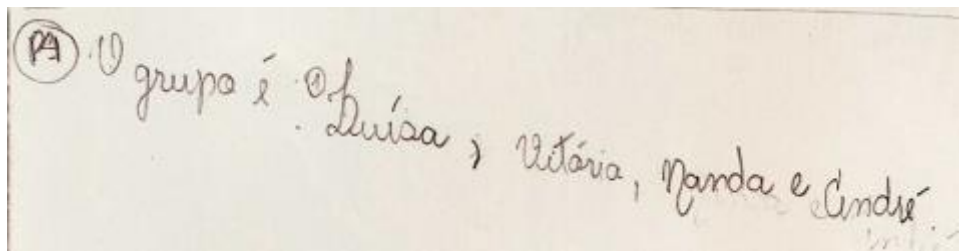 PA O grupo é: Luísa, Vitória, Nanda e André